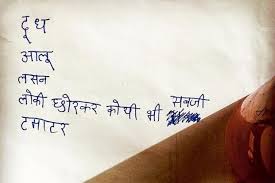 दूध
आलू
लसन
लोकी छोरकर कोयी भी सबजी
टमाटर